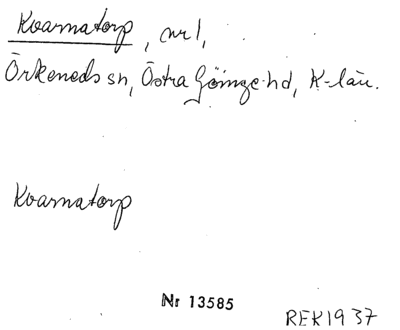 Kvarnatorp, nr 1,
Örkeneds sn, Östra Göinge hd, K-län.
Kvarnatorp
Nr 13585
REK1937